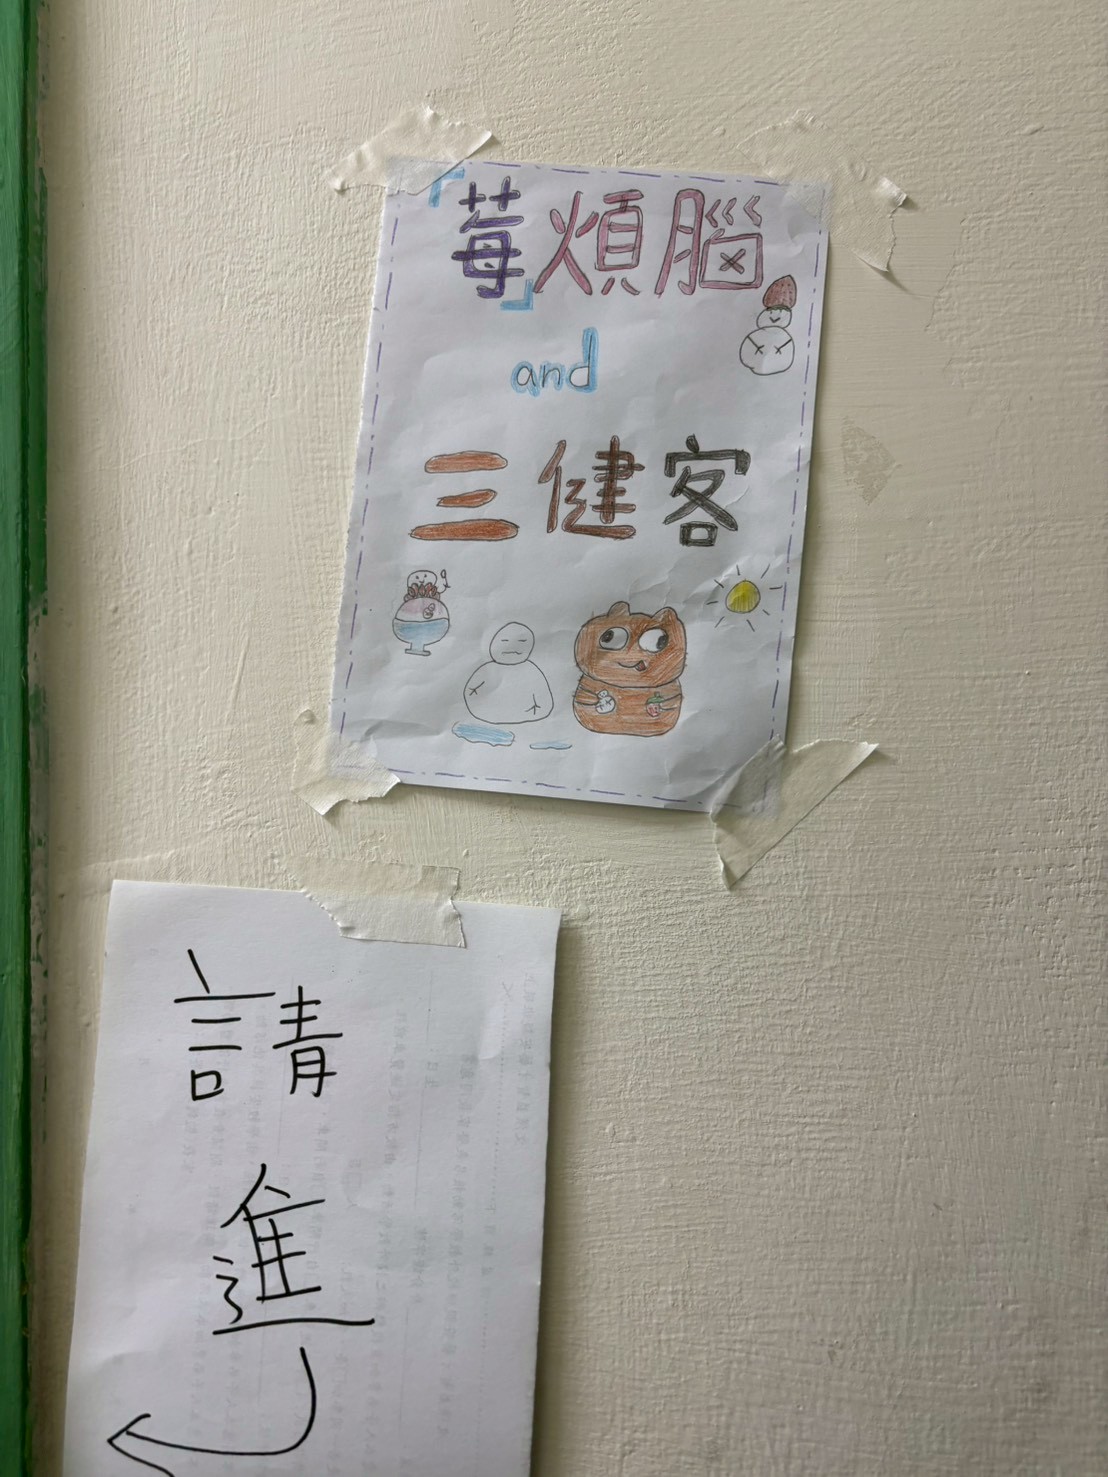 「莓」煩腦
and
三健客
請
進